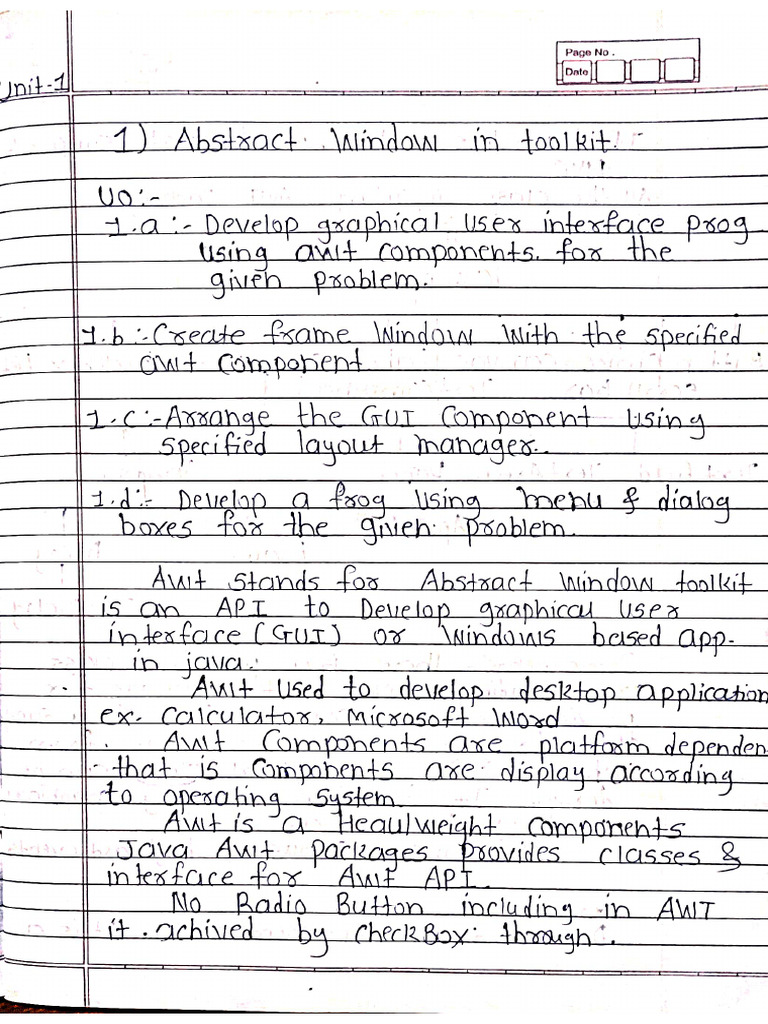 Page No.
Date
Unit-1
1) Abstract Window in toolkit.
UO:-
1.a:- Develop graphical user interface prog
using awt components. for the
given problem.
1.b:-Create frame window with the specified
awt component
1.c:-Arrange the GUI Component using
specified layout manager..
1.d:- Develop a frog using menu & dialog
boxes for the given problem.
Awt stands for Abstract window toolkit
is an API to Develop graphical user
interface (GUI) or windows based app.
in java.
Awt used to develop desktop application
ex. Calculator, Microsoft Word
Awt Components are platform dependen
that is components are display according
to operating system
Awt is a Heaulweight components
Java Awt packages provides classes &
interface for Awt API.
No Radio Button including in AWT
it. achived by checkBox through.